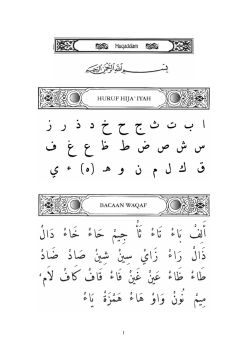 Muqaddam
بسم الله الرحمن الرحيم
HURUF HIJA' IYAH
ا ب ت ث ج ح خ د ذ ر ز
س ش ص ض ط ظ ع غ ف
ق ك ل م ن و ه (ة) ء ي
BACAAN WAQAF
أَلِفْ بَاءْ تَاءْ ثَاءْ جِيْمْ حَاءْ خَاءْ دَالْ
ذَالْ رَاءْ زَايْ سِيْنْ شِيْنْ صَادْ ضَادْ
طَاءْ ظَاءْ عَيْنْ غَيْنْ فَاءْ قَافْ كَافْ لَامْ
مِيْمْ نُوْنْ وَاوْ هَاءْ هَمْزَةْ يَاءْ
1